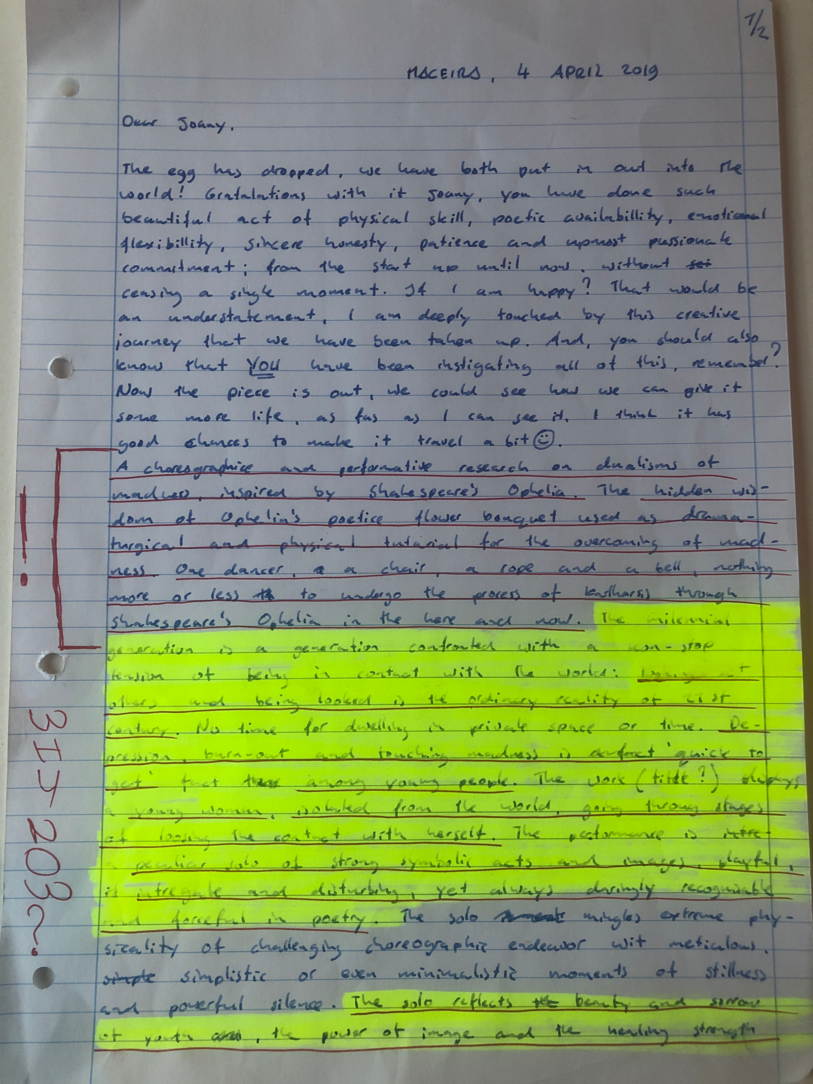 1/2
MACEIRA, 4 APRIL 2019
Dear Joany,
The egg has dropped, we have both put in out into the
world! Gratulations with it Joany, you have done such
beautiful act of physical skill, poetic availabillity, emotional
flexibillity, sincere honesty, patience and upmost passionate
commitment; from the start up until now, without
ceasing a single moment. If I am happy? That would be
an understatement, I am deeply touched by this creative
journey that we have been taken up. And, you should also
know that YOU have been instigating all of this, remember?
Now the piece is out, we could see how we can give it
some more life, as fas as I can see it, I think it has
good chances to make it travel a bit ☺.
A choreographice and performative research on dualisms of
madness, inspired by Shakespeare's Ophelia. The hidden wis-
dom of Ophelia's poetice flower bouquet used as drama-
turgical and physical tutorial for the overcoming of mad-
ness. One dancer, a chair, a rope and a bell, nothing
more or less to undergo the process of through
Shakespeare's Ophelia in the here and now. The milennial
generation is a generation confronted with a non-stop
tension of being in contact with the world: at
others and being looked is the ordinary reality of 21st
century. No time for dwelling in private space or time. De-
pression, burn-out and touching madness is 'quick to
get' fact among young people. The work (title?) displays
a young woman, isolated from the world, going throug stages
of loosing the contact with herself. The performance is
a peculiar solo of strong symbolic acts and images, playful,
is intregate and disturbing, yet always daringly recognisable
and forceful in poetry. The solo mingles extreme phy-
sicality of challenging choreographic endeavor wit meticulous,
simple simplistic or even minimalistic moments of stillness
and powerful silence. The solo reflects the beauty and sorrow
of youth, the power of image and the healing strength